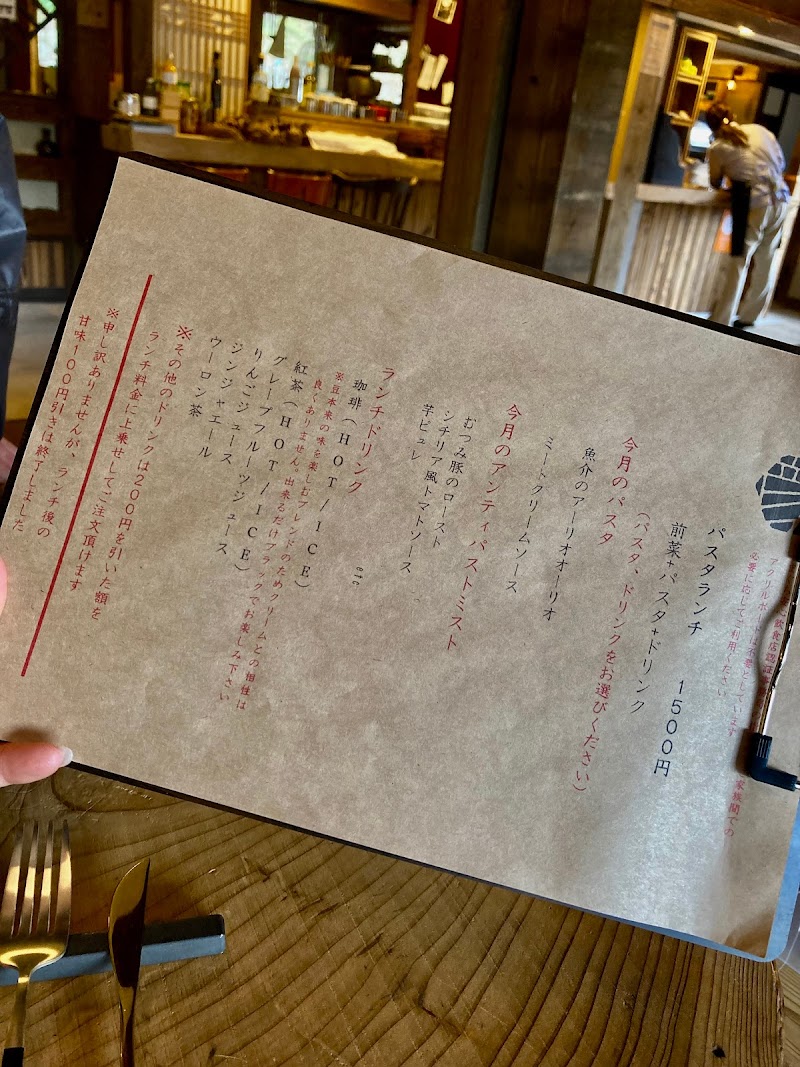 飲食店認証
家族間での
アクリルボードは不要としています
必要に応じてご利用ください
パスタランチ 1500円
前菜+パスタ+ドリンク
(パスタ、ドリンクをお選びください)
今月のパスタ
魚介のアーリオオーリオ
ミートクリームソース
今月のアンティパストミスト
むつみ豚のロースト
シチリア風トマトソース
芋ピュレ
etc
ランチドリンク
珈琲(HOT/ICE)
※豆本来の味を楽しむブレンドのためクリームとの相性は
良くありません。出来るだけブラックでお楽しみ下さい
紅茶(HOT/ICE)
グレープフルーツジュース
りんごジュース
ジンジャエール
ウーロン茶
※その他のドリンクは200円を引いた額を
ランチ料金に上乗せしてご注文頂けます
※申し訳ありませんが、ランチ後の
甘味100円引きは終了しました